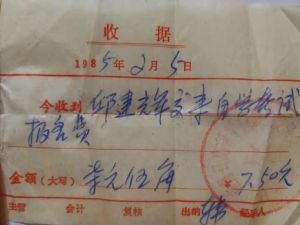 收据
1985年2月5日
今收到邱建军交来自学考试
报名费
金额（大写）柒元伍角 ￥7.50元
主管 会计 复核 出纳 经手人